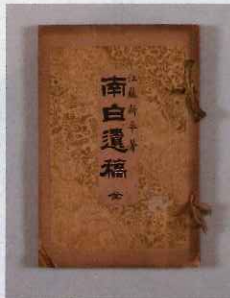 江藤新平著
南白遺稿 全